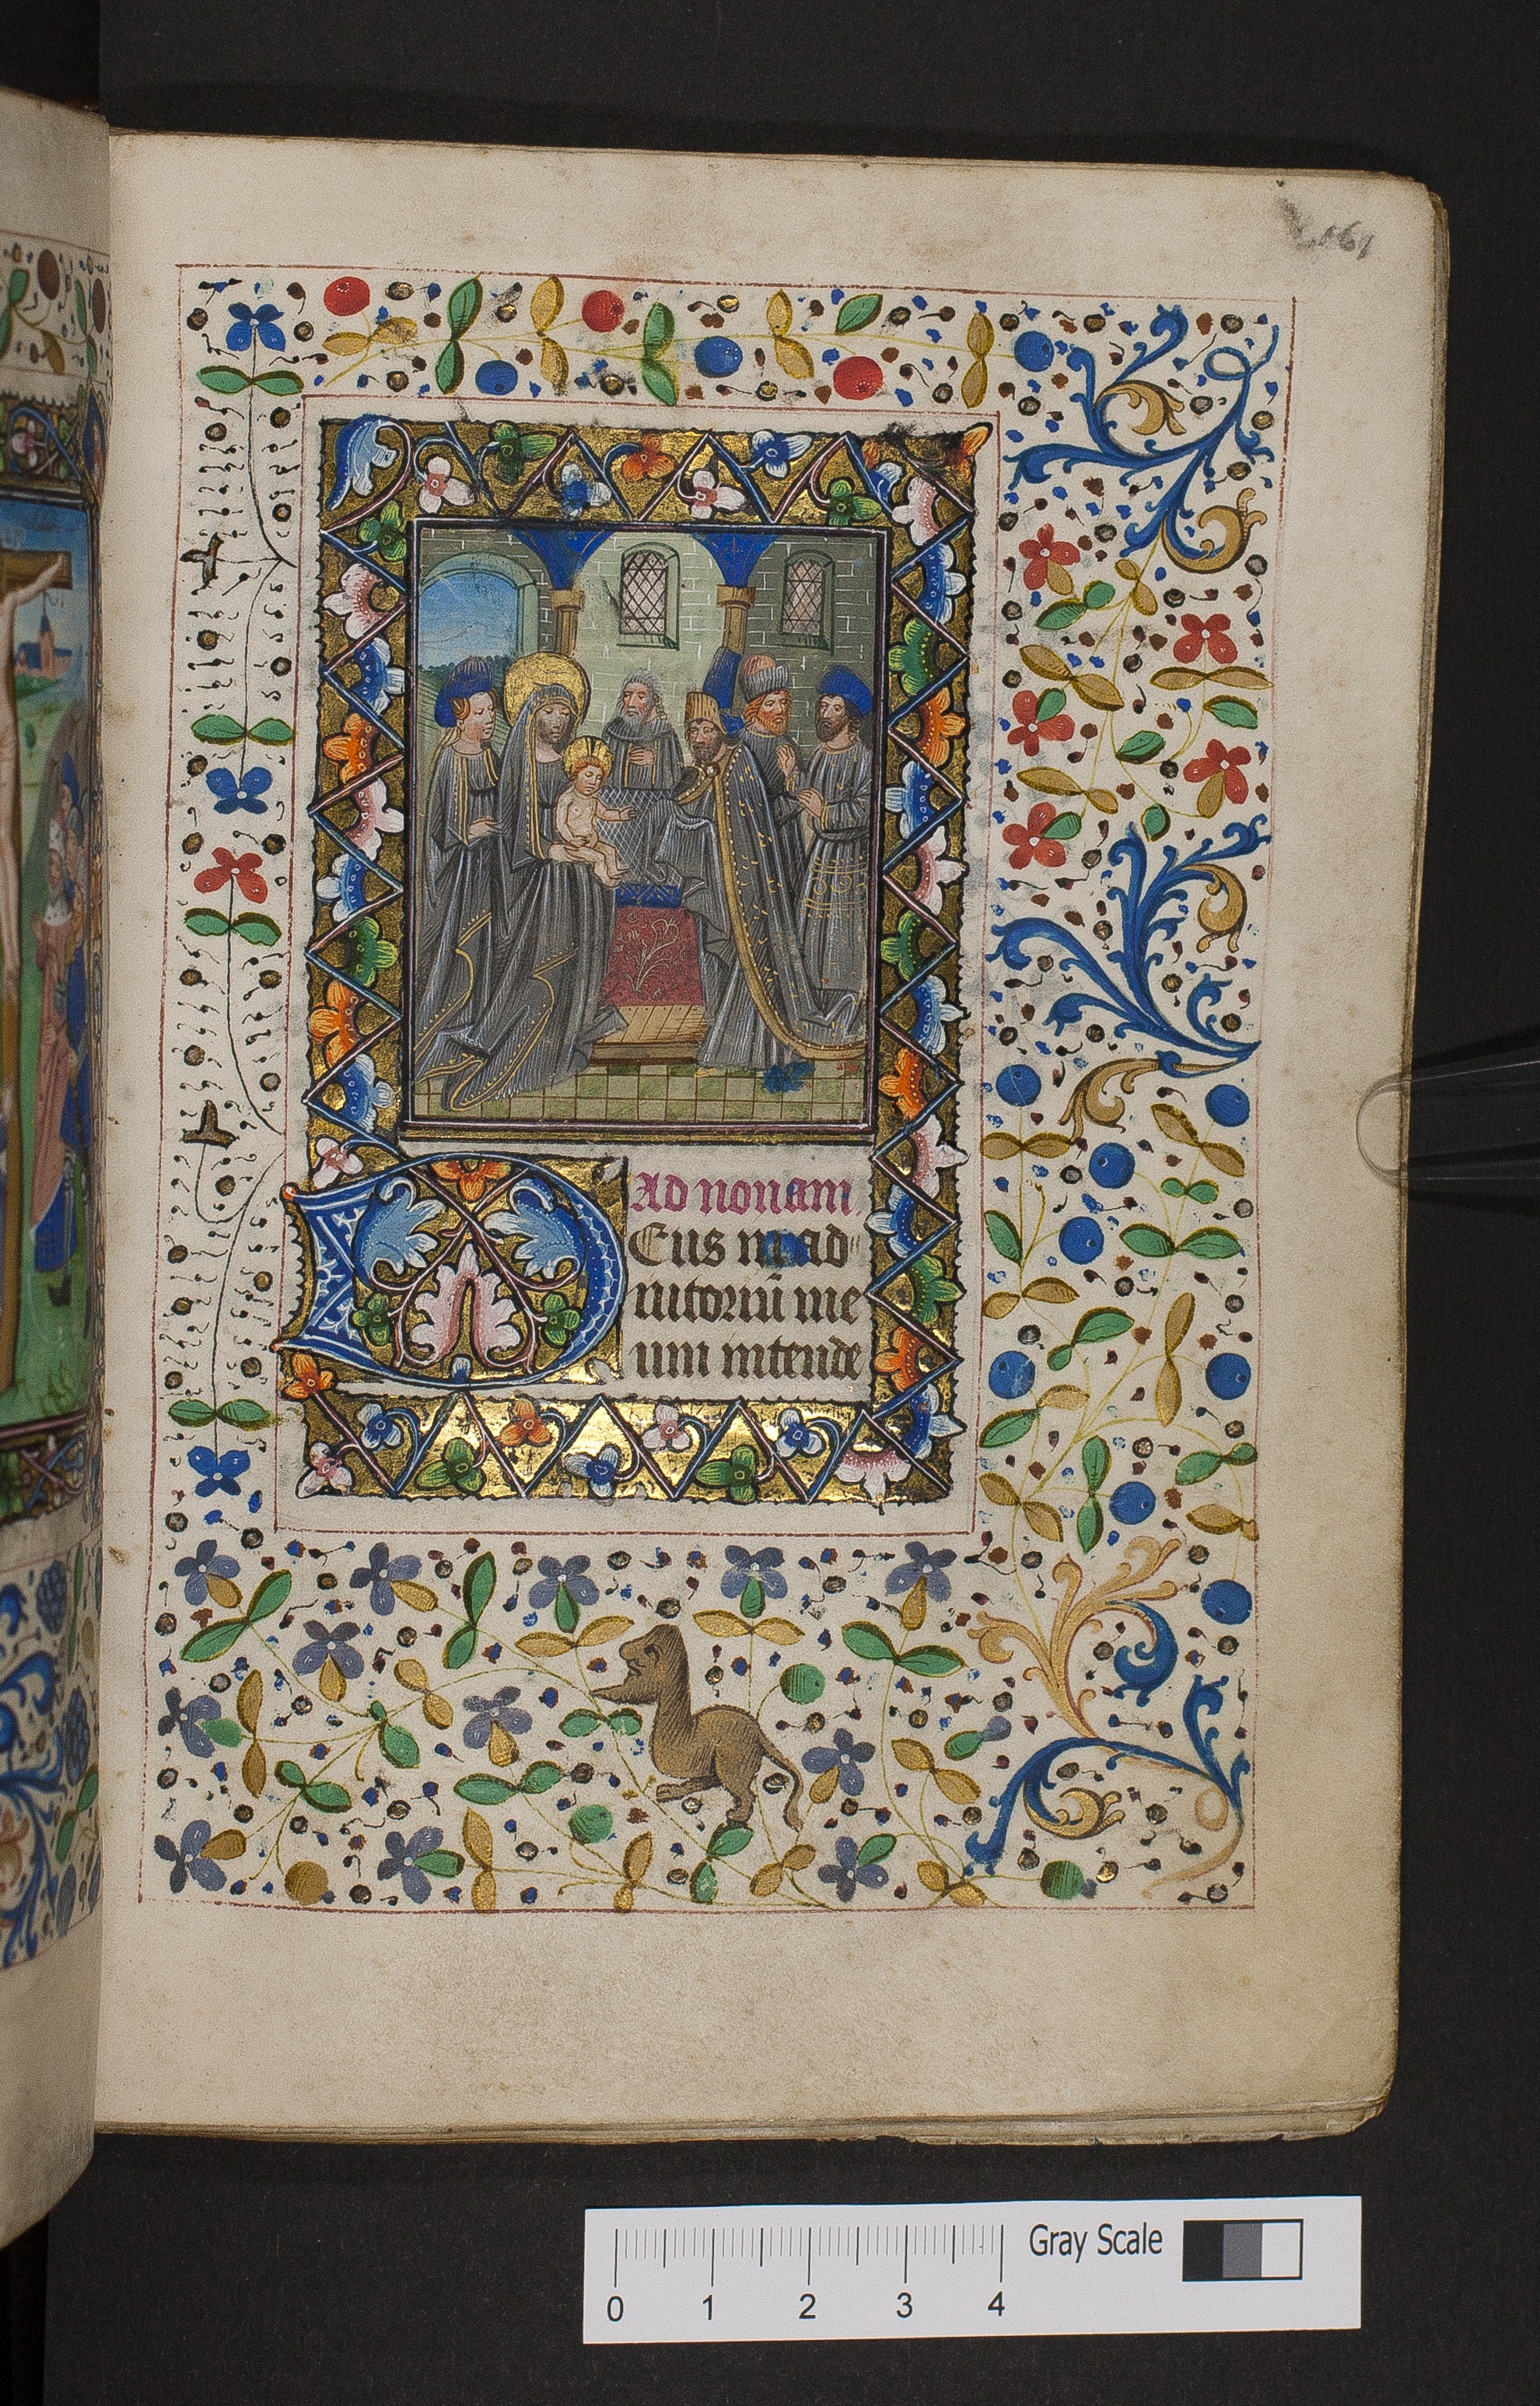 161
Ad nonam.
Deus in ad
iutoriū me
um intende
Gray Scale
0 1 2 3 4